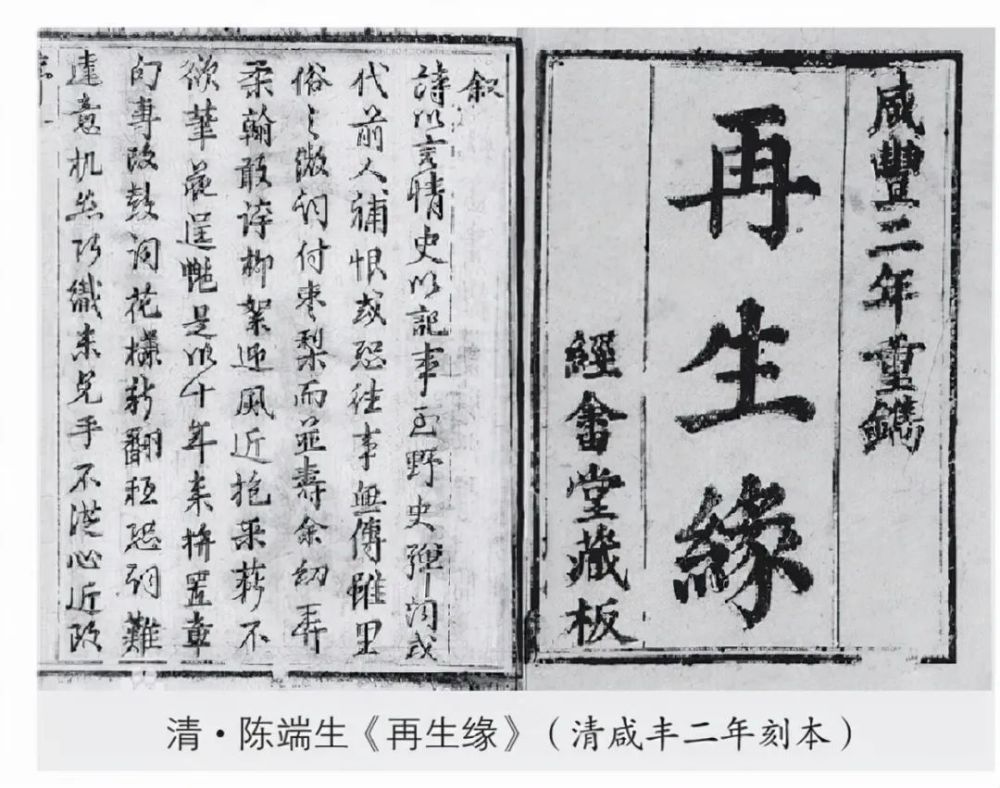 咸豐二年重鐫
再生緣
經畬堂藏板
叙
詩以言情史以記事至野史彈詞或
代前人補恨或恐往事無傳雖里
俗之微詞付棗梨而並壽余幼弄
柔翰敢誇柳絮迎風近抱采薪不
欲筆花逞艷是以十年來拚置章
句專改鼓詞花樣新翻秪恐詞難
達意机絲巧織未免手不從心近改
清·陈端生《再生缘》（清咸丰二年刻本）